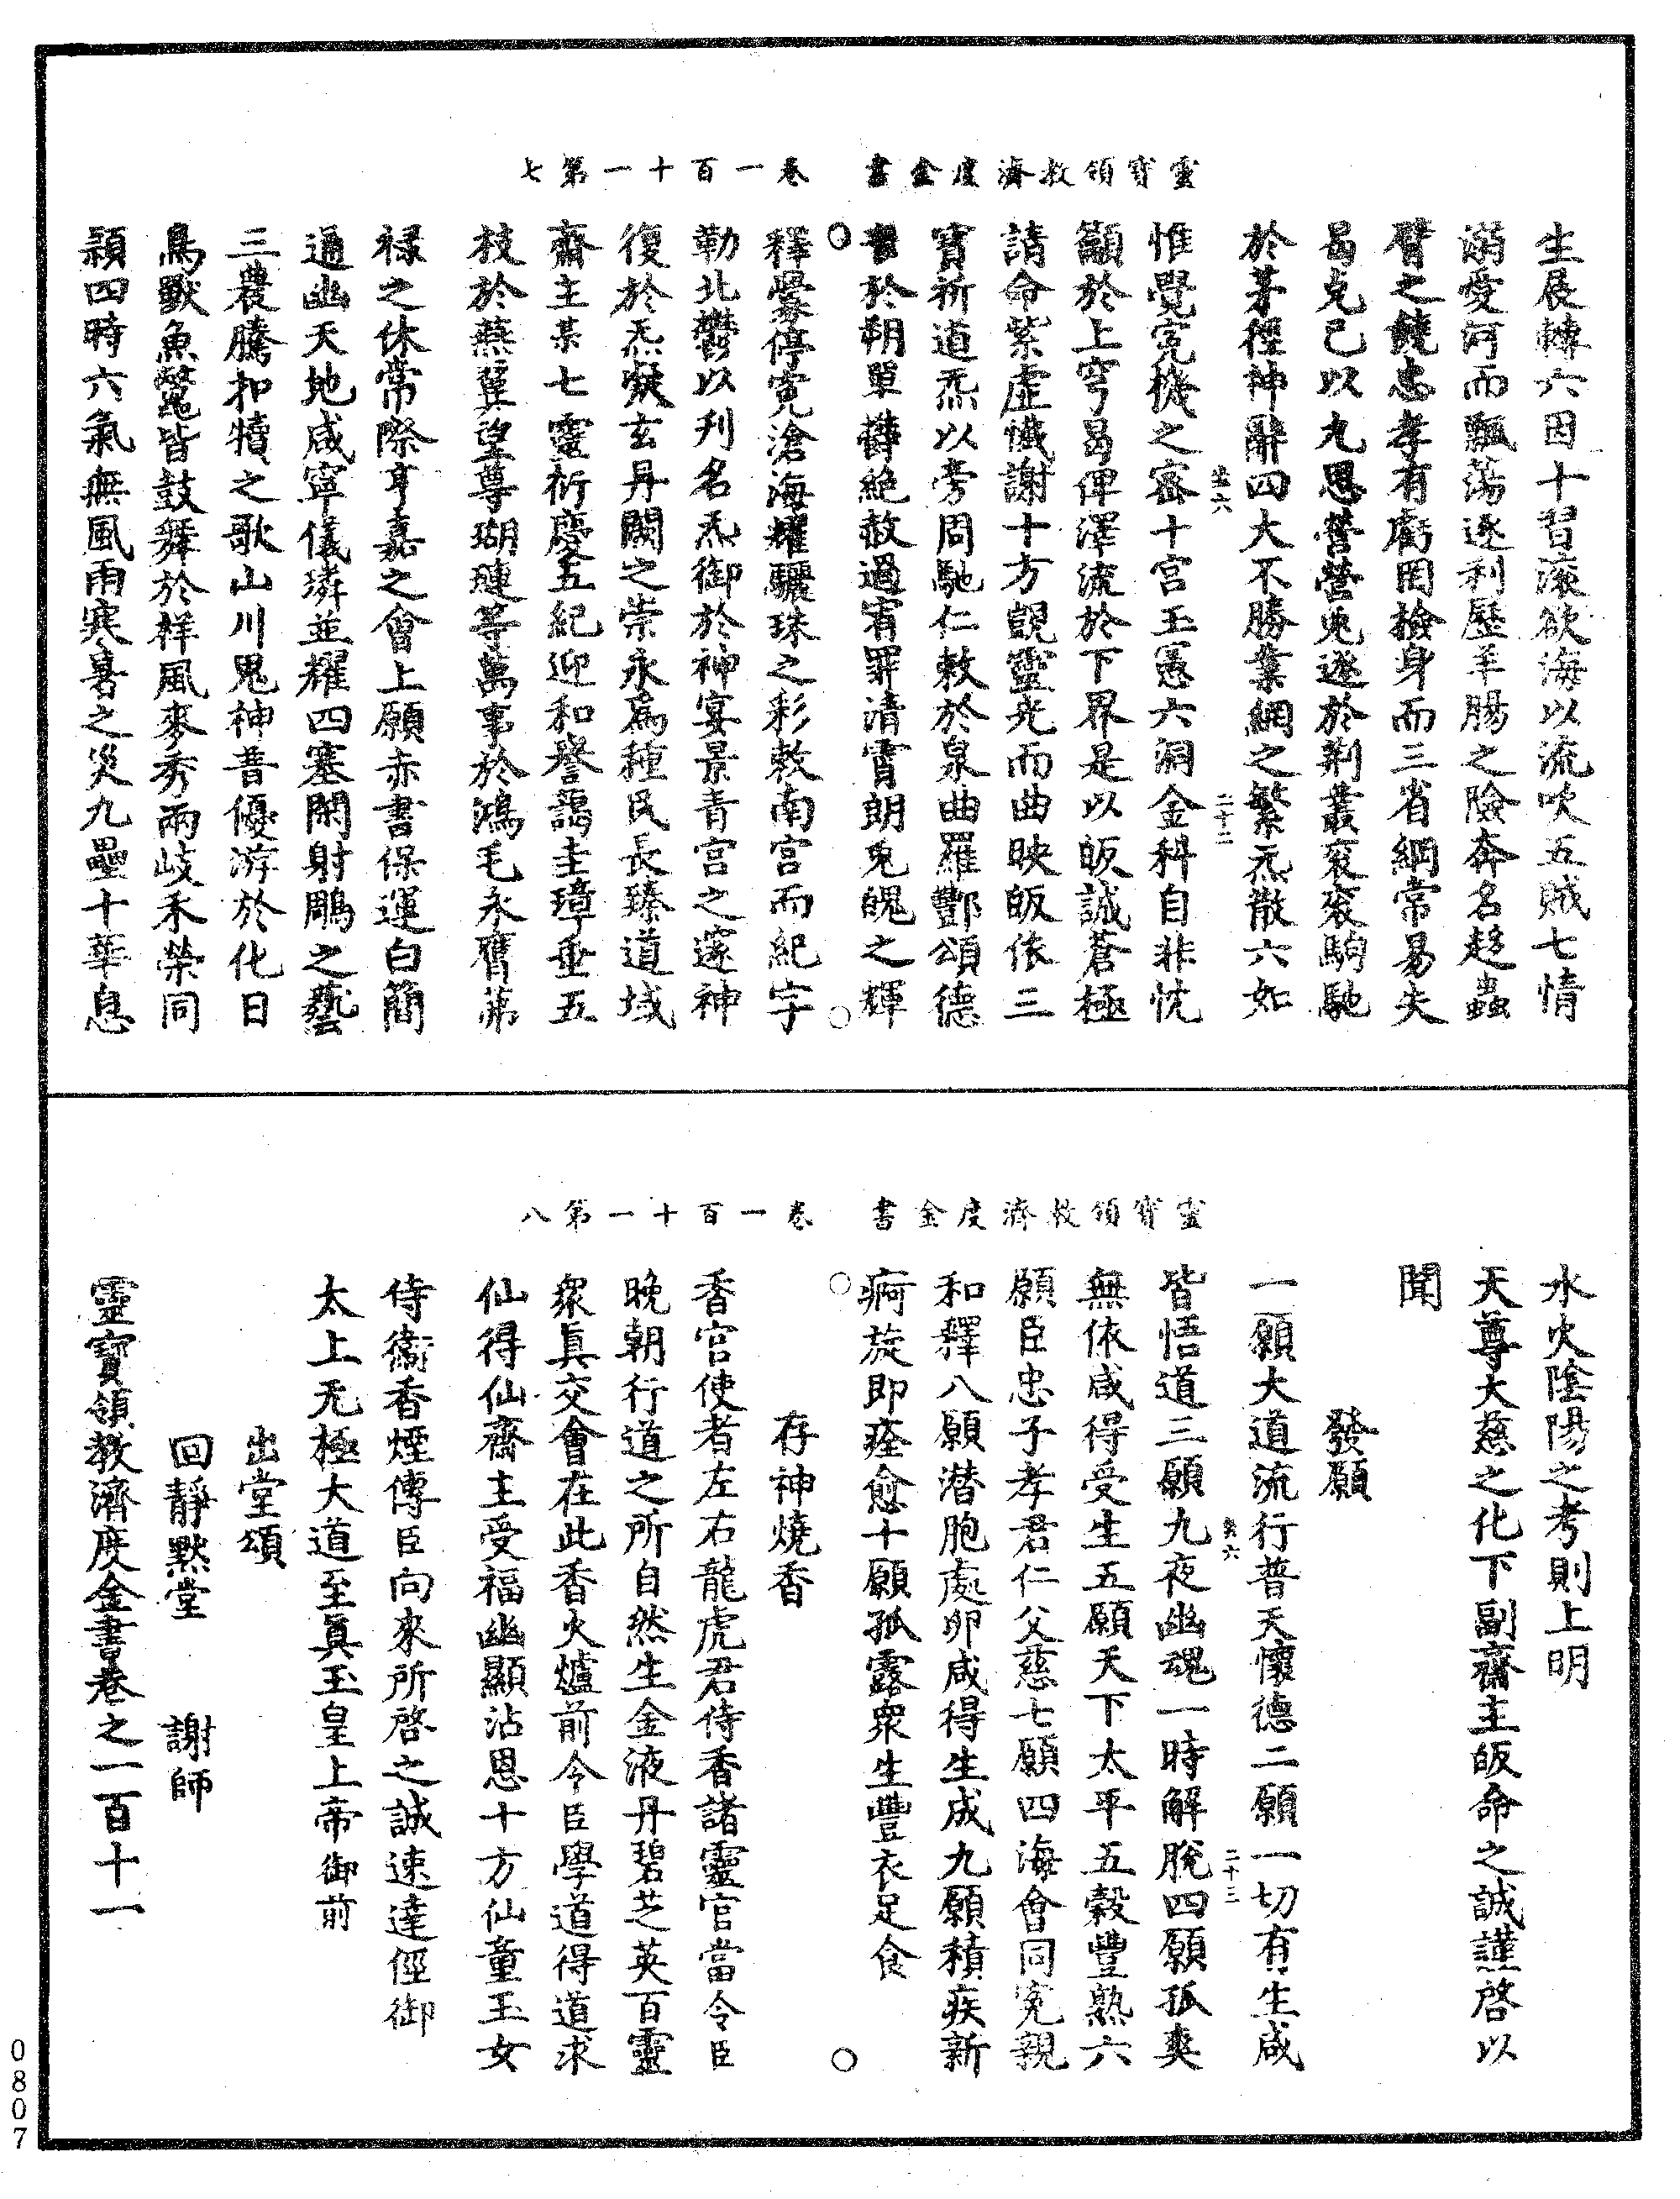 靈寶領教濟度金書　卷一百十一第七
生展轉六因十習滚欲海以流吹五賊七情
溺愛河而飄蕩逐利歷羊腸之險奔名趍蟲
臂之饒忠孝有虧罔撿身而三省綱常易失
曷克己以九思營營兎逐於荆叢衮衮駒馳
於茅徑神辭四大不勝業網之繁炁散六如
惟覺寃機之密十宫玉憲六洞金科自非忱
籲於上穹曷俾澤流於下界是以皈誠蒼極
請命紫虚懺謝十方覬靈光而曲映皈依三
寶祈道炁以旁周馳仁敕於泉曲羅酆頌德
音於朔單鬱絶赦過宥罪清霄朗兎魄之輝
釋爨停寃滄海耀驪珠之彩敕南宫而紀字
勒北鬱以刋名炁御於神宴景青宫之邃神
復於炁歘玄丹闕之崇永爲種民長臻道域
齋主某七靈衍慶五紀迎和譽藹圭璋垂五
枝於燕翼望尊瑚璉等萬事於鴻毛永膺茀
禄之休常際亨嘉之會上願赤書保運白簡
通幽天地咸寧儀璘並耀四塞閑射鵰之藝
三農騰扣犢之歌山川鬼神普優游於化日
鳥獸魚鼈皆鼓舞於祥風麥秀兩岐禾榮同
穎四時六氣無風雨寒暑之災九壘十華息
靈寶領教濟度金書　卷一百十一第八
水火陰陽之考則上明
天尊大慈之化下副齋主皈命之誠謹啓以
聞
發願
一願大道流行普天懷德二願一切有生咸
皆悟道三願九夜幽魂一時解脫四願孤爽
無依咸得受生五願天下太平五穀豐熟六
願臣忠子孝君仁父慈七願四海會同寃親
和釋八願潛胞處卵咸得生成九願積疾新
痾旋即痊愈十願孤露衆生豐衣足食
存神燒香
香官使者左右龍虎君侍香諸靈官當令臣
晚朝行道之所自然生金液丹碧芝英百靈
衆真交會在此香火爐前令臣學道得道求
仙得仙齋主受福幽顯沾恩十方仙童玉女
侍衞香煙傳臣向來所啓之誠速達徑御
太上无極大道至真玉皇上帝御前
出堂頌
回靜默堂　謝師
靈寶領教濟度金書卷之一百十一
二十二
二十三
0807